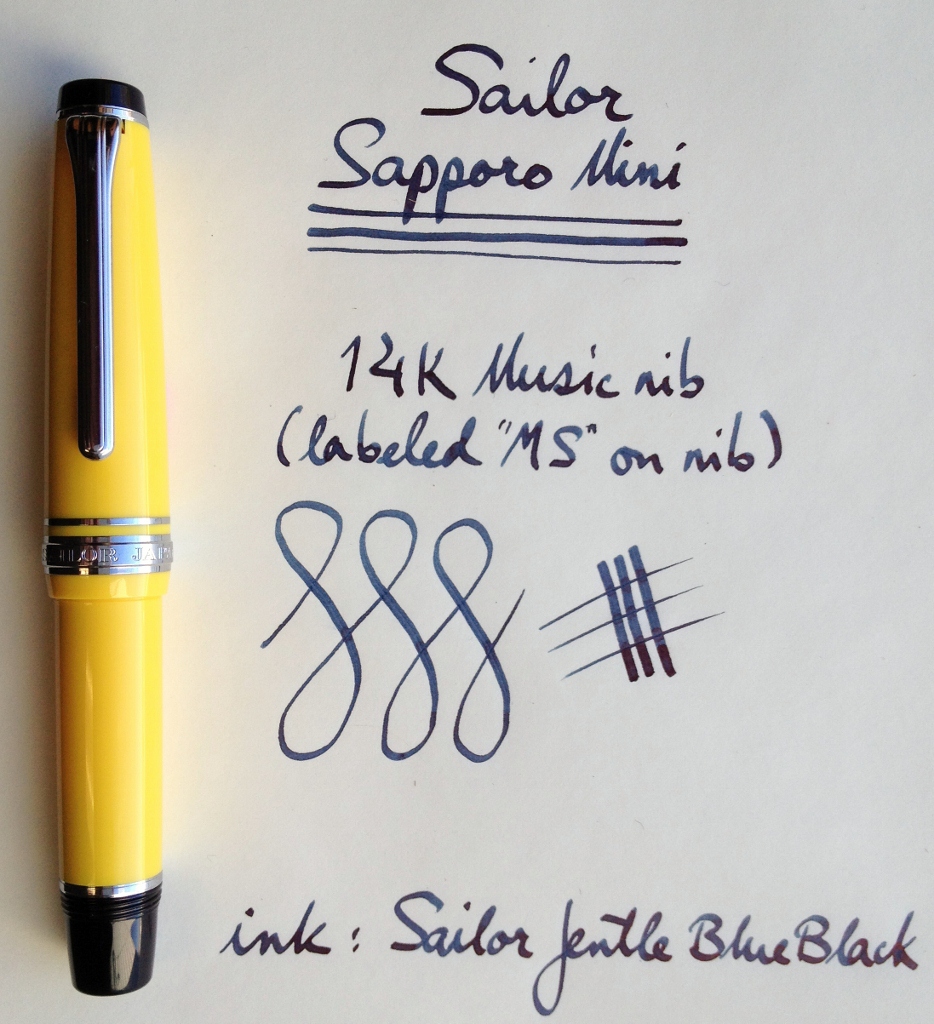 Sailor
Sapporo Mini
14K Music nib
(labeled "MS" on nib)
ILOR JAP
ink : Sailor Jentle BlueBlack